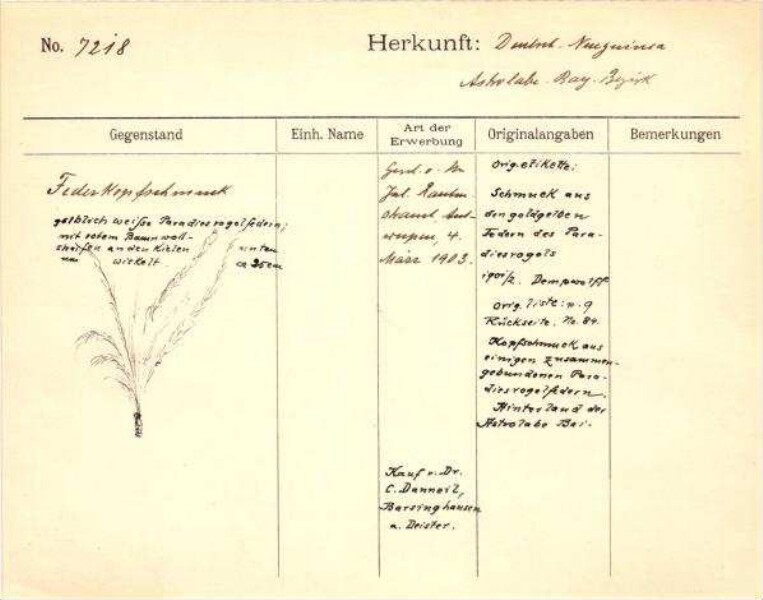 No. 7218
Herkunft: Deutsch-Neuguinea
Astrolabe-Bay-Bezirk
Gegenstand
Einh. Name
Art der
Erwerbung
Originalangaben
Bemerkungen
Federkopfschmuck
gelblich weiße Paradiesvogelfedern;
mit rotem Baumwoll-
an den Kielen
unten
wickelt.
ca 35cm
Gesch. v. Hn
Jul.
4.
März 1903.
Kauf v. Dr.
C. Danneil,
Barsinghausen
a. Deister.
Orig. etikette:
Schmuck aus
den goldgelben
Federn des Para-
diesvogels
Orig. liste: p. 9
Rückseite. No. 84.
Kopfschmuck aus
einigen zusammen-
gebundenen Para-
diesvogelfedern.
Hinterland der
Astrolabe Bai.